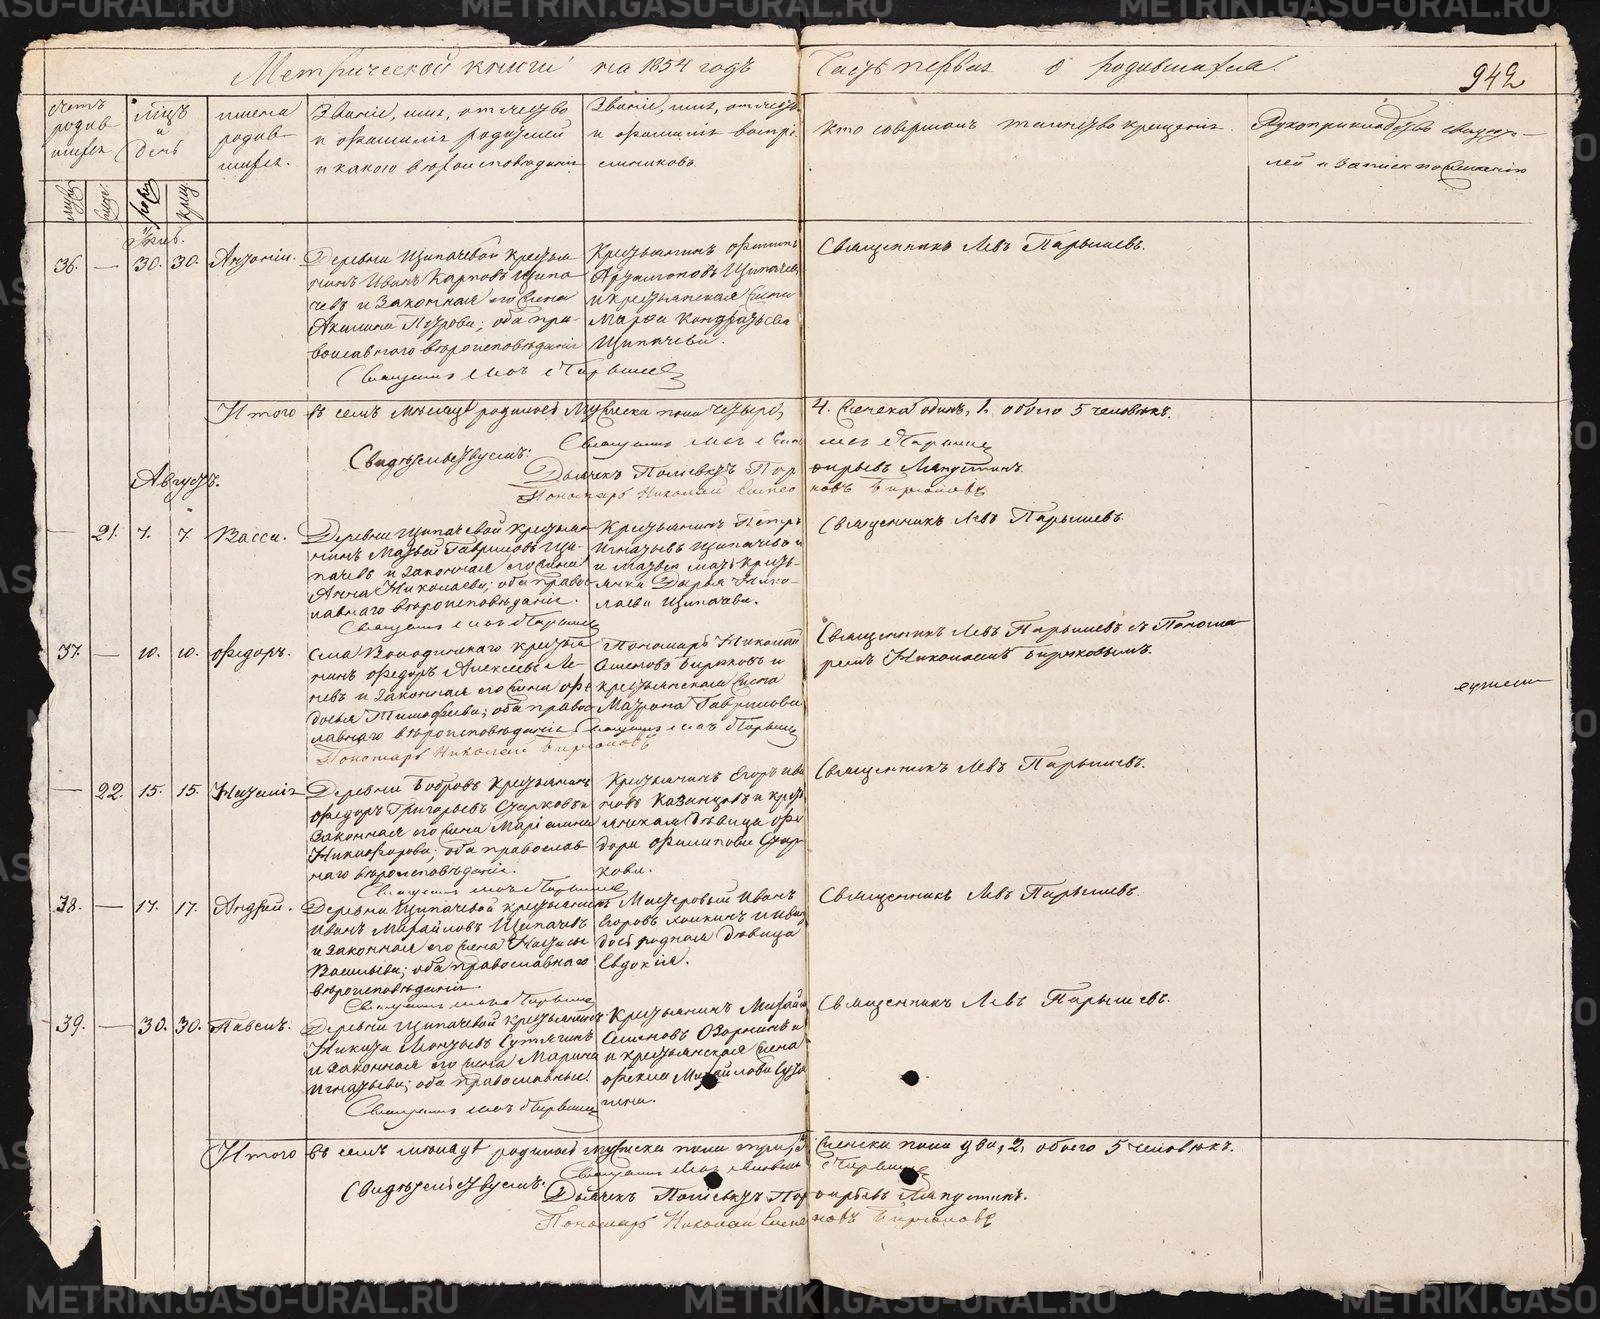 Метрической книги на 1854 годъ Часть первая о родившихся.
942
Счетъ родившихся
Мѣсяцъ и день
имена родившихся.
Званіе, имя, отчество и фамилія родителей и какого вѣроисповѣданія.
Званіе, имя, отчество и фамилія воспріемниковъ.
Кто совершалъ таинство крещенія.
Рукоприкладство свидѣтелей о записи по желанію
муж. жен. рожд. крещ.
36. — 30. 30. Антоній.
Деревни Щипачевой крестья
нинъ Иванъ Карповъ Щипа
чевъ и законная его жена
Акилина Петрова; оба пра-
вославнаго вѣроисповѣданія
Крестьянинъ Филипъ
Артамоновъ Щипачевъ
и крестьянская жена
Марѳа Кондратьева
Щипачева.
Священникъ Левъ Парышевъ.
Священникъ Левъ Парышевъ
Итого въ семъ мѣсяцѣ родилось мужеска пола четыре, 4. женска одинъ, 1. обоего 5 человѣкъ.
Священникъ Левъ Парышевъ
Свидѣтельствуемъ:
Дьячекъ Полиевктъ Порфирьевъ Ляпустинъ
Пономарь Николай Симеоновъ Бирюковъ
Августъ.
— 21. 7. 7. Васса.
Деревни Щипачевой крестья-
нинъ Матвей Гавриловъ Щи-
пачевъ и законная его жена
Анна Николаева; оба правос
лавнаго вѣроисповѣданія.
Крестьянинъ Петръ
Игнатьевъ Щипачевъ и
Дарья Нико-
лаева Щипачева.
Священникъ Левъ Парышевъ.
Священникъ Левъ Парышевъ
37. — 10. 10. Федоръ.
Села крестья
нинъ Федоръ Алексеевъ
и законная его жена Фе
досья Тимофеева; оба правос
лавнаго вѣроисповѣданія
Пономарь Николай
Семеновъ Бирюковъ и
крестьянская жена
Матрона Гаврилова
Священникъ Левъ Парышевъ
Пономарь Николай Бирюковъ
Священникъ Левъ Парышевъ съ Понома-
ремъ Николаемъ Бирюковымъ.
— 22. 15. 15. Наталія
Деревни Бобровъ крестьянинъ
Федоръ Григорьевъ Старковъ и
законная его жена
Никифорова; оба православ
наго вѣроисповѣданія.
Крестьянинъ Егоръ Ива
новъ Казанцовъ и крест
янская дѣвица Фе
дора Филипова Стар
кова.
Священникъ Левъ Парышевъ
Священникъ Левъ Парышевъ.
38. — 17. 17. Андрей.
Деревни Щипачевой крестьянинъ
Иванъ Михайловъ Щипачевъ
и законная его жена Наталья
Васильева; оба православнаго
вѣроисповѣданія.
Мастеровый Иванъ
Егоровъ
родная дѣвица
Евдокія.
Священникъ Левъ Парышевъ
Священникъ Левъ Парышевъ.
39. — 30. 30. Павелъ.
Деревни Щипачевой крестьянинъ
Никита Сутягинъ
и законная его жена Марина
Игнатьева; оба православные
Крестьянинъ Михайло
Семеновъ Озорнинъ
и крестьянская жена
Фекла Михайлова Сутя
гина.
Священникъ Левъ Парышевъ
Священникъ Левъ Парышевъ.
Итого въ семъ мѣсяцѣ родилось мужеска пола три, 3 женска пола два, 2, обоего 5 человѣкъ.
Священникъ Левъ Парышевъ
Свидѣтельствуемъ:
Дьячекъ Полиевктъ Порфирьевъ Ляпустинъ.
Пономарь Николай Симеоновъ Бирюковъ
METRIKI.GASO-URAL.RU